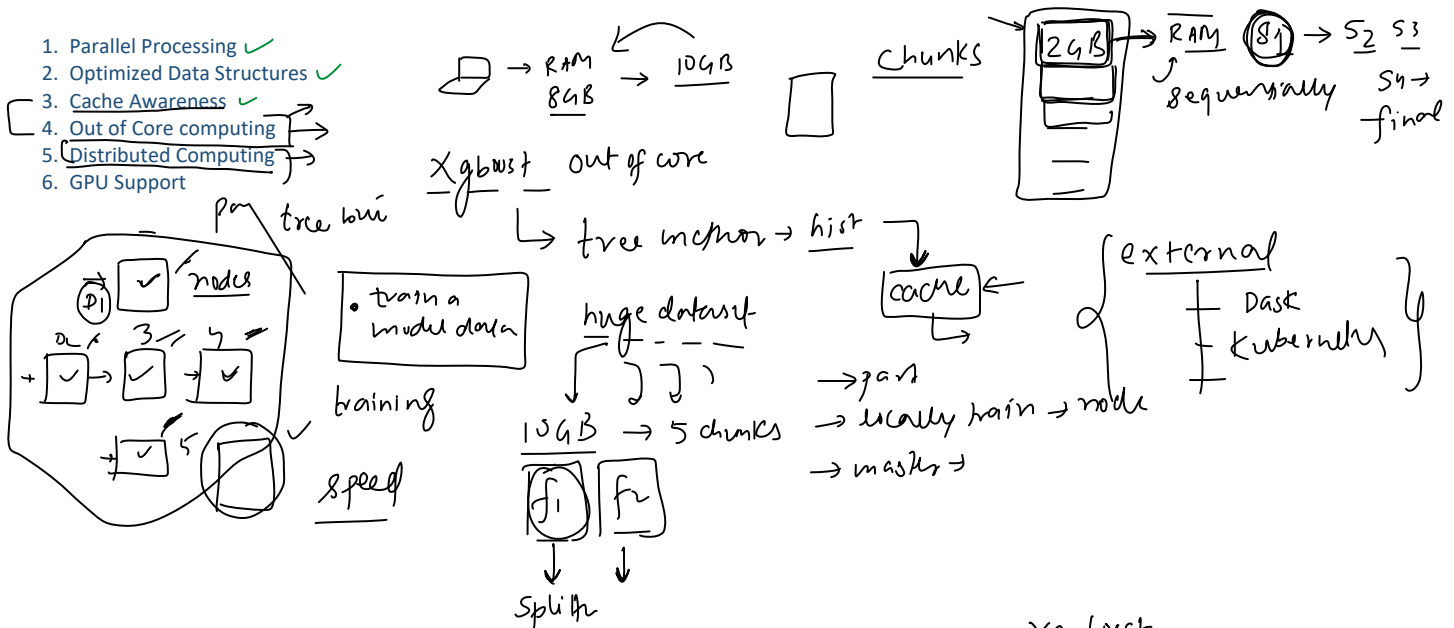 1. Parallel Processing ✓
2. Optimized Data Structures ✓
3. Cache Awareness ✓
4. Out of Core computing
5. Distributed Computing
6. GPU Support
→ RAM → 10GB
8GB
Chunks
2GB → RAM S1 → S2 S3
sequentially S4 →
final
Xgboost out of core
tree
→ hist
cache
external
Dask
Kubernetes
D1 nodes
3 4
5
• train a
model data
training
speed
huge dataset
10GB → 5 chunks
f1 f2
→ part
→ locally train → node
→ master →